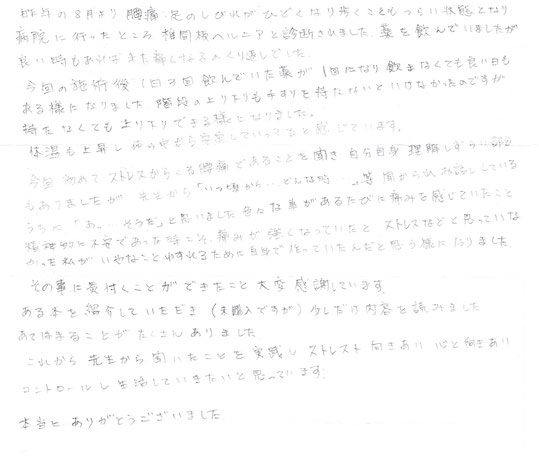 昨年の8月より 腰痛・足のしびれがひどくなり歩くこともつらい状態となり
病院に行ったところ 椎間板ヘルニアと診断されました。薬を飲んでいましたが
良い時もあればまた痛くなるのくり返しでした。
今回の施術後 1日3回飲んでいた薬が 1回になり 飲まなくても良い日も
ある様になりました 階段の上り下りも手すりを持たないといけなかったのですが
持たなくても上り下りできる様になりました。
体温も上昇し 体の中から安定していってると感じています。
今回 初めて ストレスからくる腰痛であることを聞き 自分自身 理解しずらい部分
もありましたが 先生から「いつ頃から…どんな時…」等 聞かれお話ししている
うちに「あ。…そうだ」と思いました 色々な事があるたびに痛みを感じていたこと
精神的に不安であった時こそ、痛みが強くなっていたと ストレスなどと思っていな
かった私が いやなことわすれるために自分で作っていたんだと思う様になりました
その事に気付くことができたこと 大変 感謝しています。
ある本を紹介していただき (未購入ですが) 少しだけ内容を読みました
あてはまることが たくさん ありました
これから 先生から聞いたことを実践し ストレスと向きあい 心と向きあい
コントロールし生活していきたいと思っています。
本当に ありがとうございました